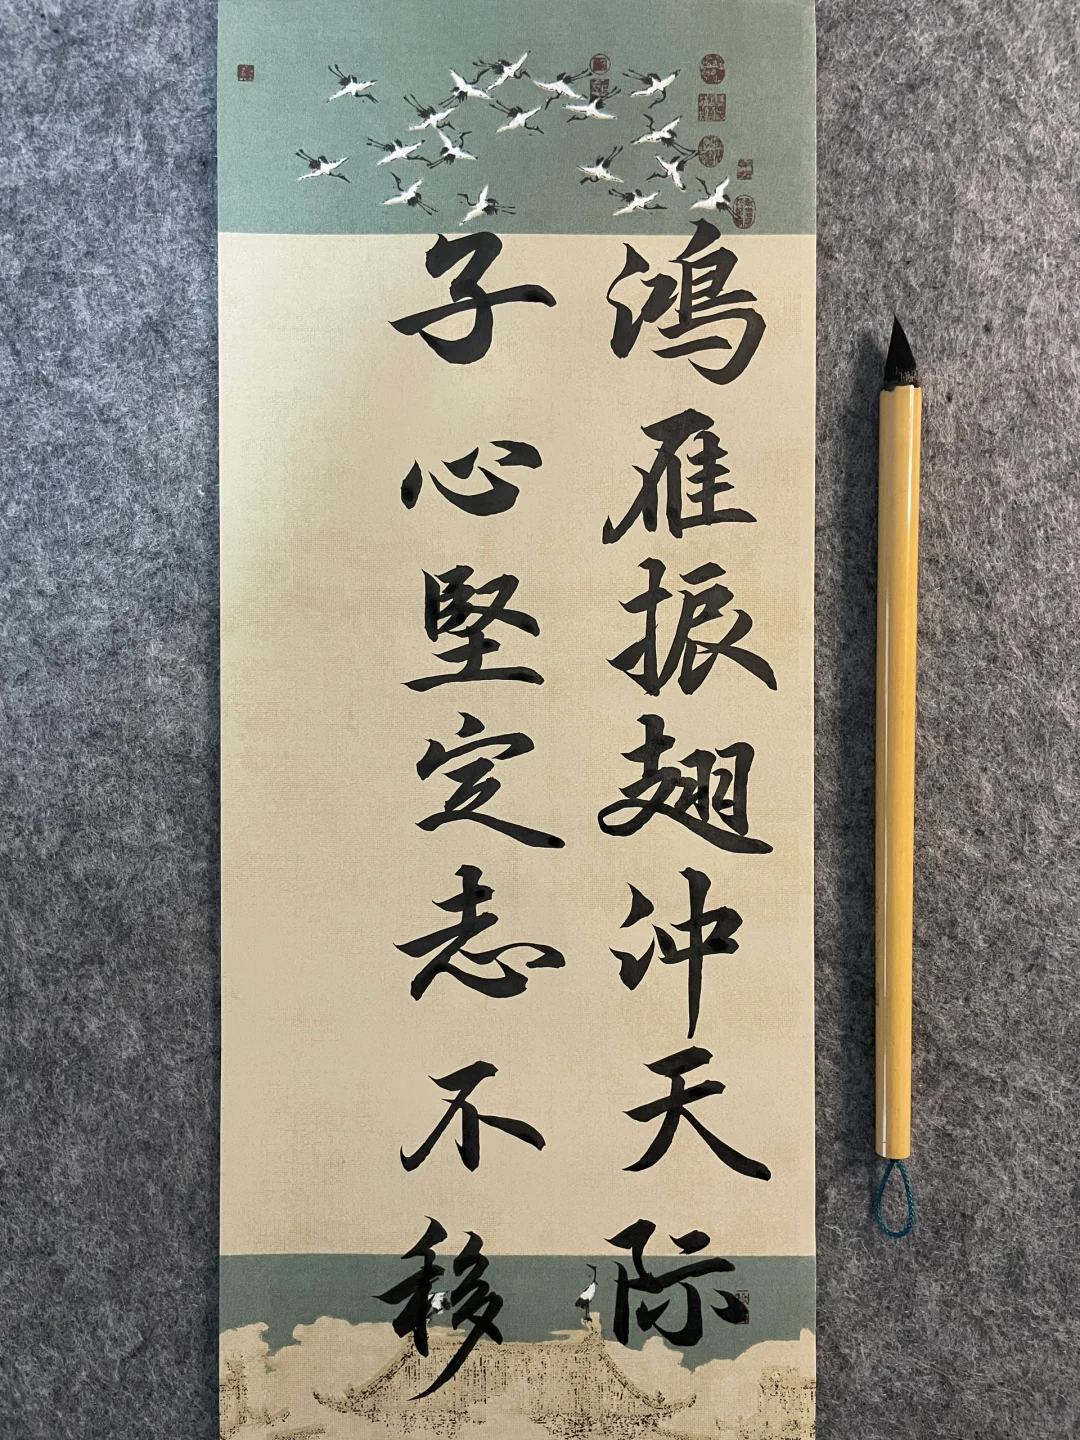 鴻雁振翅沖天际
子心堅定志不移